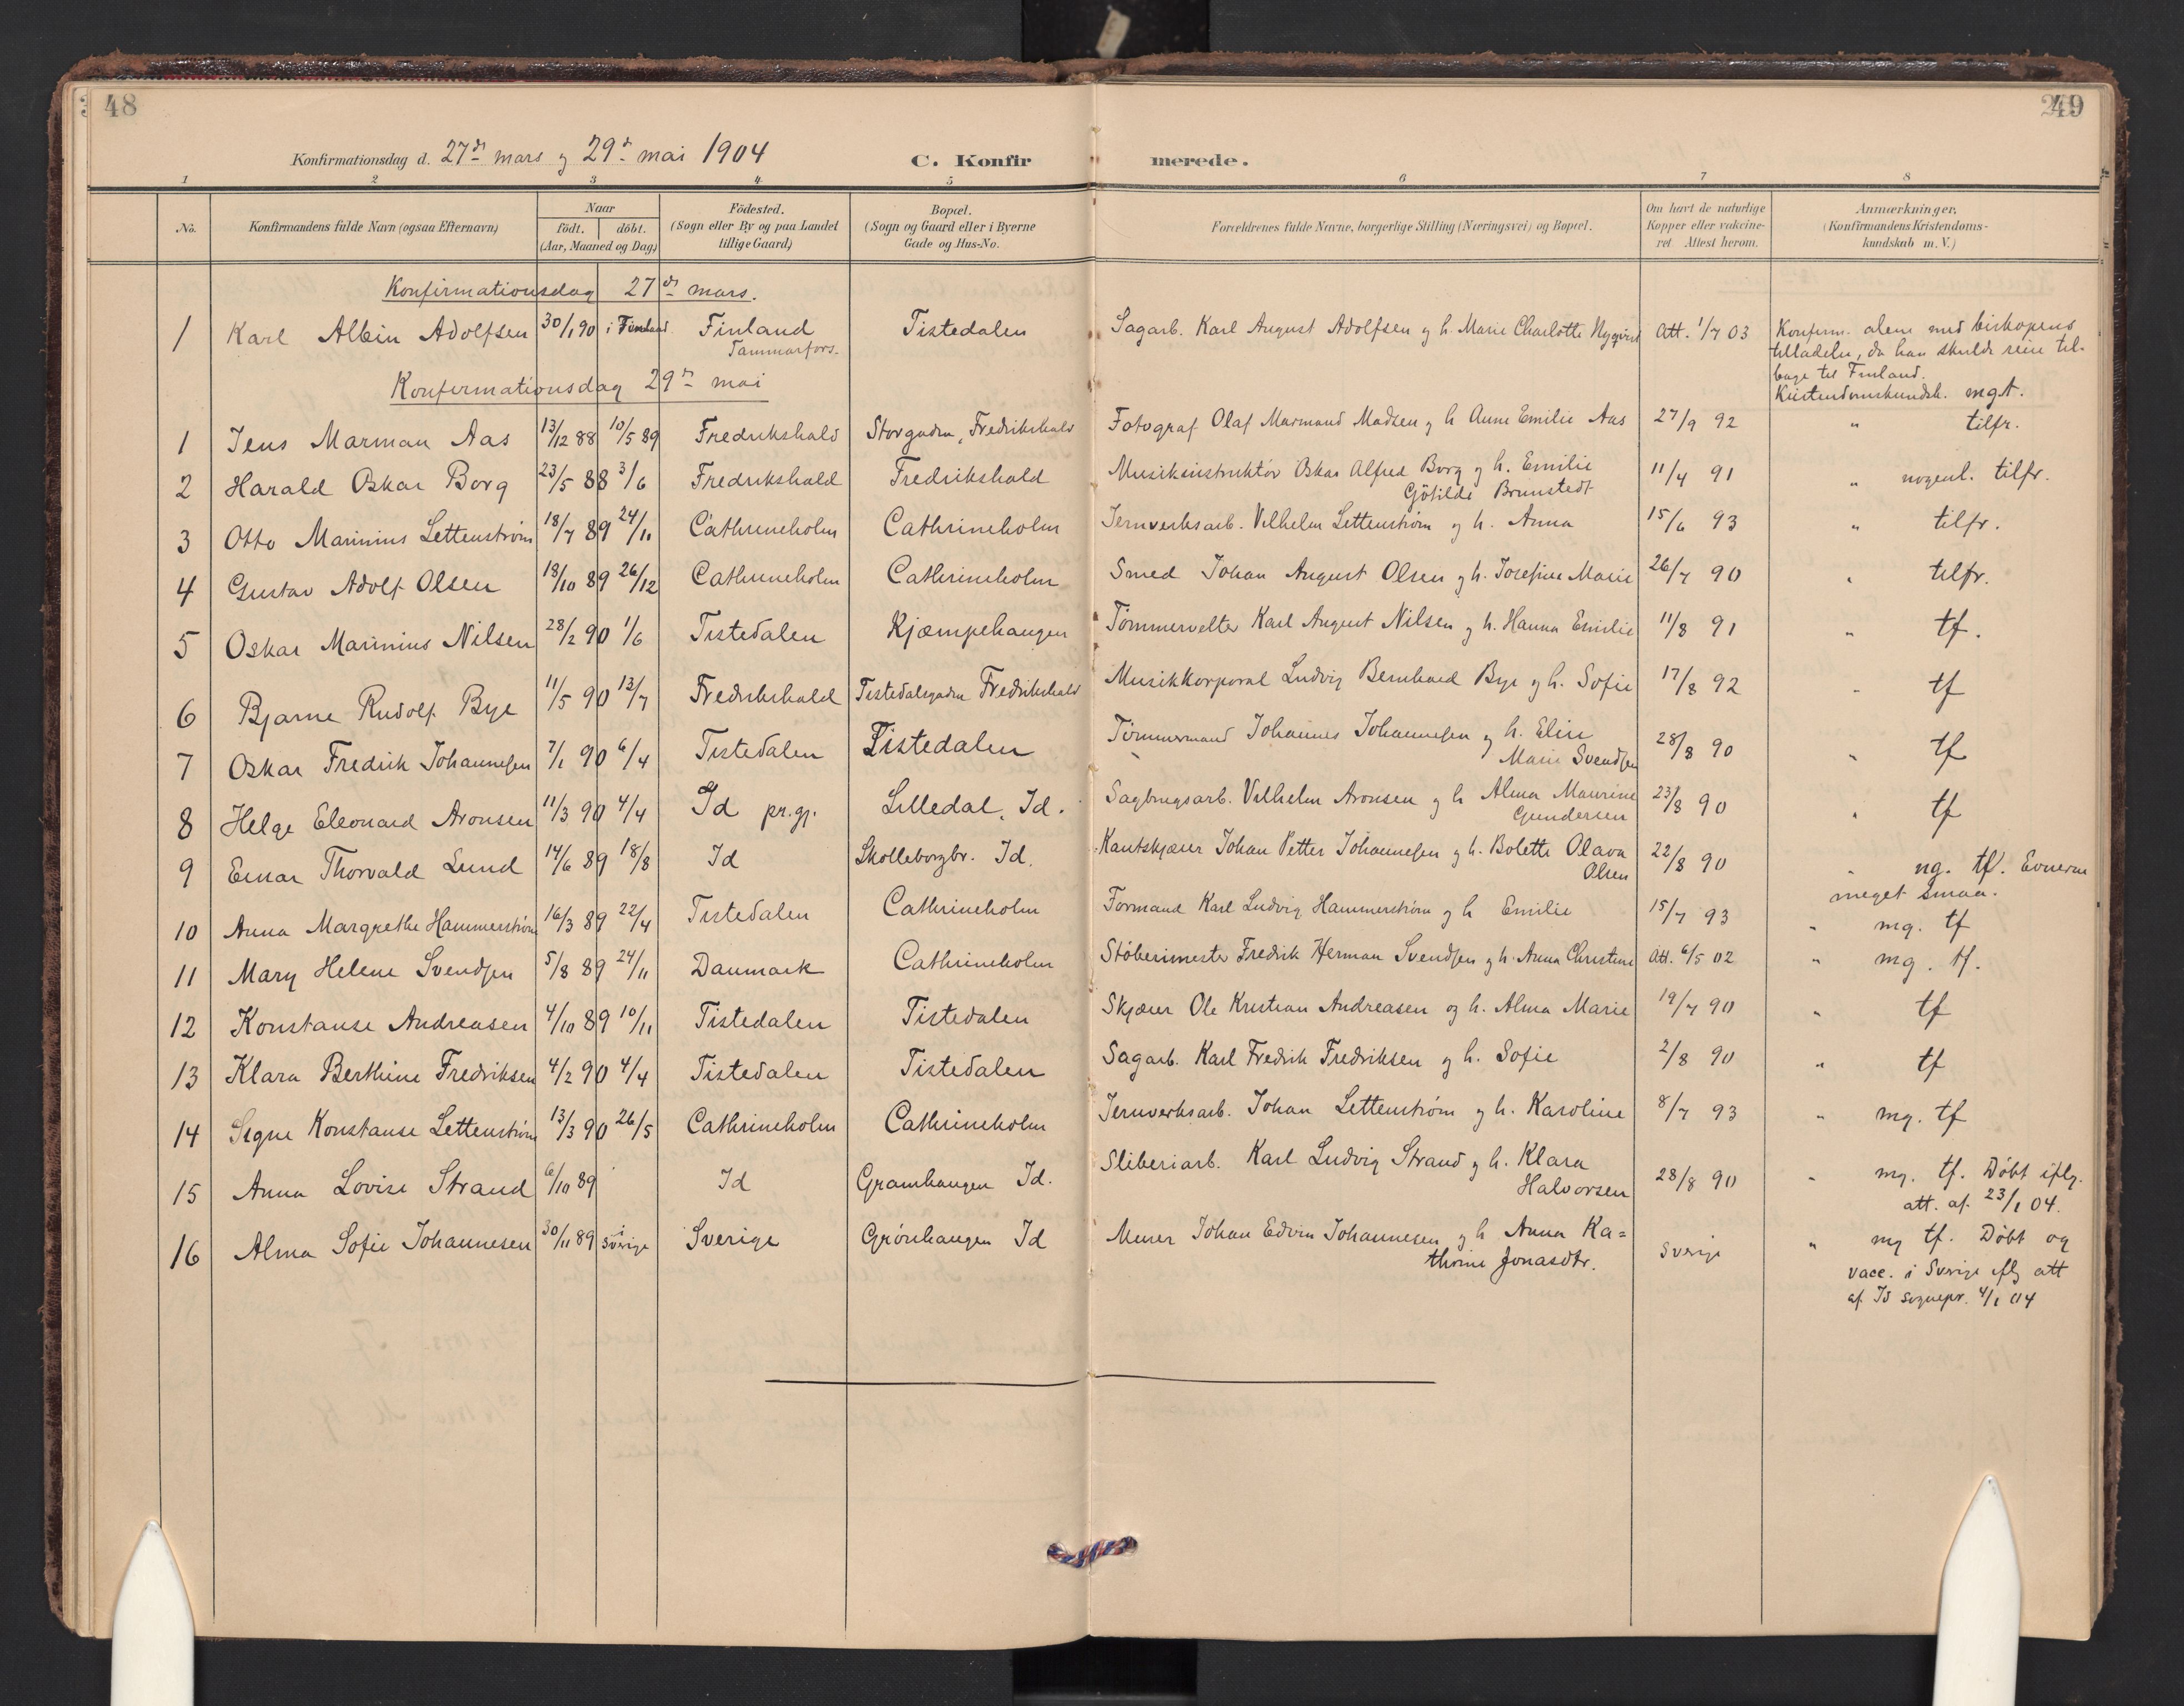 48
49
Konfirmationsdag d. 27de mars og 29de mai 1904 C. Konfir merede.
1 2 3 4 5 6 7 8
No. Konfirmandens fulde Navn (ogsaa Efternavn) Naar födt. döbt. (Aar, Maaned og Dag) Födested. (Sogn eller By og paa Landet tillige Gaard) Bopæl. (Sogn og Gaard eller i Byerne Gade og Hus-No. Forældrenes fulde Navne, borgerlige Stilling (Næringsvei) og Bopæl. Om havt de naturlige Kopper eller vakcineret. Attest herom. Anmærkninger. (Konfirmandens Kristendomskundskab m. V.)
Konfirmationsdag 27de mars.
1 Karl Albin Adolfsen 30/1 90 i Finland Finland Tammarfors. Tistedalen Sagarb. Karl August Adolfsen og h. Marie Charlotte Nyqvist Att. 1/7 03 Konfirm. alene med biskopens
tilladelse, da han skulde reise til-
bage til Finland.
Kristendomskundsk. mgt.
Konfirmationsdag 29de mai
1 Jens Marman Aas 13/12 88 10/5 89 Fredrikshald Storgaden, Fredrikshald Fotograf Olaf Marmand Madsen og h Anne Emilie Aas 27/9 92 " tilfr.
2 Harald Oskar Borg 23/5 88 3/6 Fredrikshald Fredrikshald Musikinstruktör Oskar Alfred Borg og h. Emilie Götilde Brunstedt 11/4 91 " nogenl. tilfr.
3 Otto Marinius Lettenstrøm 18/7 89 24/11 Cathrineholm Cathrineholm Jernverksarb. Vilhelm Lettenstrøm og h. Anna 15/6 93 " tilfr.
4 Gustav Adolf Olsen 18/10 89 26/12 Cathrineholm Cathrineholm Smed Johan August Olsen og h. Josefine Marie 26/7 90 " tilfr.
5 Oskar Marinius Nilsen 28/2 90 1/6 Tistedalen Kjæmpehaugen Tömmervelter Karl August Nilsen og h. Hanna Emilie 11/8 91 " tf.
6 Bjarne Rudolf Bye 11/5 90 13/7 Fredrikshald Tistedalsgaden Fredrikshald Musikkorporal Ludvig Bernhard Bye og h. Sofie 17/8 92 " tf
7 Oskar Fredrik Johannesen 7/1 90 6/4 Tistedalen Tistedalen Tømmermand Johannes Johannesen og h. Elin Marie Svendsen 28/8 90 " tf
8 Helge Eleonard Aronsen 11/3 90 4/4 Id pr.gj. Lilledal, Id. Sagbrugsarb. Vilhelm Aronsen og h Alma Maurine Gundersen 23/8 90 " tf
9 Einar Thorvald Lund 14/6 89 18/8 Id Skolleborgbr. Id. Kantskjærer Johan Petter Johannesen og h. Bolette Olava Olsen 22/8 90 " ng. tf. Evnerne
meget smaa.
10 Anna Margrethe Hammerstrøm 16/3 89 22/4 Tistedalen Cathrineholm Formand Karl Ludvig Hammerstrøm og h Emilie 15/7 93 " mg. tf
11 Mary Helene Svendsen 5/8 89 24/11 Danmark Cathrineholm Støberimester Fredrik Herman Svendsen og h. Anna Christine Att. 6/5 02 " mg. tf.
12 Konstanse Andreasen 4/10 89 10/11 Tistedalen Tistedalen Skjærer Ole Kristian Andreasen og h. Alma Marie 19/7 90 " tf
13 Klara Berthine Fredriksen 4/2 90 4/4 Tistedalen Tistedalen Sagarb. Karl Fredrik Fredriksen og h. Sofie 2/8 90 " tf
14 Signe Konstanse Lettenstrøm 13/3 90 26/5 Cathrineholm Cathrineholm Jernverksarb. Johan Lettenstrøm og h. Karoline 8/7 93 " mg. tf
15 Anna Lovise Strand 6/10 89 Id Gramhaugen Id. Sliberiarb. Karl Ludvig Strand og h. Klara Halvorsen 28/8 90 " mg. tf. Døbt iflg.
att. af. 23/1 04.
16 Alma Sofie Johannesen 30/11 89 i Sverige Sverige Grønhaugen Id Murer Johan Edvin Johannesen og h Anna Ka=
thrine Jonasdtr. Sverige " mg tf. Døbt og
vacc. i Sverige iflg att
af Id sognepr. 4/1 04